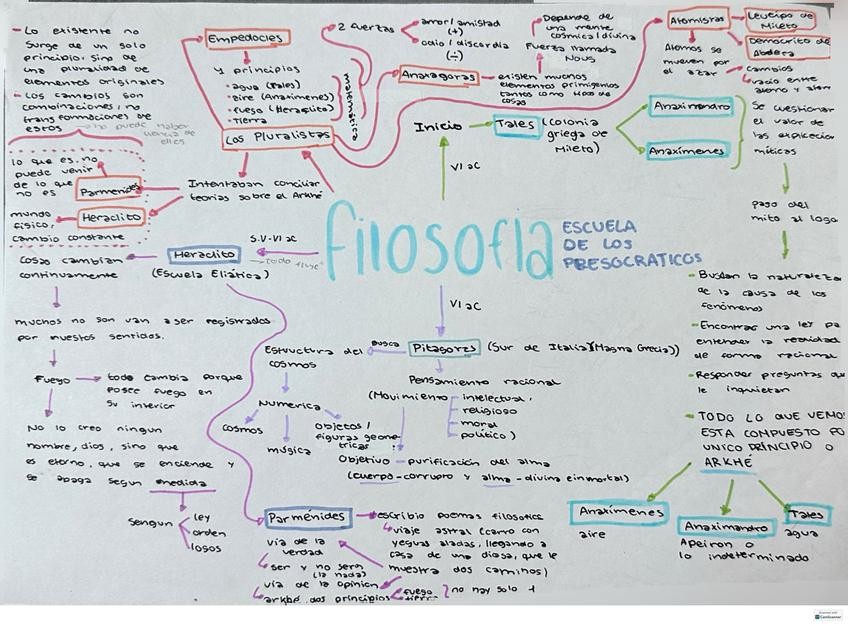 - Lo existente no
surge de un solo
principio, sino de
una pluralidad de
elementos originales
- Los cambios son
combinaciones, no
transformaciones de
estos
no puede haber
Empedocles
4 principios
• agua (Tales)
• aire (Anaximenes)
• fuego (Heraclito)
• tierra
2 fuerzas
amor/amistad
(+)
odio/discordia
(-)
Los Pluralistas
Intentaban conciliar
teorias sobre el Arkhé
lo que es, no
puede venir
de lo que
no es
Parmenides
mundo
fisico,
cambio constante
Heraclito
Anaxagoras
existen muchos
elementos primigenios
tantos como tipos de
cosas
Fuerza llamada
Nous
Depende de
una mente
cosmica/divina
Atomistas
Leucipo de
Mileto
Demócrito de
Abdera
Atomos se
mueven por
el azar
cambios
vacio entre
atomo y atom
Inicio
Tales (Colonia
griega de
Mileto)
VI aC
Anaximandro
Anaximenes
Se cuestionan
el valor de
las explicacion
miticas
paso del
mito al logo
- Buscan la naturaleza
de la causa de los
fenómenos
- Encontrar una ley pa
entender la realidad
de forma racional
- Responder preguntas que
le inquietan
- TODO LO QUE VEMO
ESTA COMPUESTO PO
UNICO PRINCIPIO O
ARKHÉ
Anaximenes
aire
Anaximandro
Apeiron o
lo indeterminado
Tales
agua
filosofia
ESCUELA
DE LOS
PRESOCRATICOS
S.V-VI aC
todo fluye
Heraclito
(Escuela Eliática)
Cosas cambian
continuamente
muchos no son van a ser registrados
por nuestos sentidos.
Fuego
todo cambia porque
posee fuego en
su interior
No lo creo ningun
nombre, dios, sino que
es eterno, que se enciende y
se apaga segun medida
Sengun
ley
orden
logos
VI aC
Pitagoras (Sur de Italia)(Magna Grecia))
Busca
Estructura del
cosmos
Numerica
cosmos
musica
objetos/
figuras geome-
tricas
Pensamiento racional
(Movimiento
intelectual,
religioso
moral
politico)
Objetivo - purificación del alma
(cuerpo-corrupto y alma-divina e inmortal)
Parménides
escribio poemas filosoficos
viaje astral (carro con
yeguas aladas, llegando a
casa de una diosa, que le
muestra dos caminos)
via de la
verdad
ser y no sera
(la nada)
via de la opinion
arkhé dos principios
fuego
tierr
no hay solo 1
CamScanner